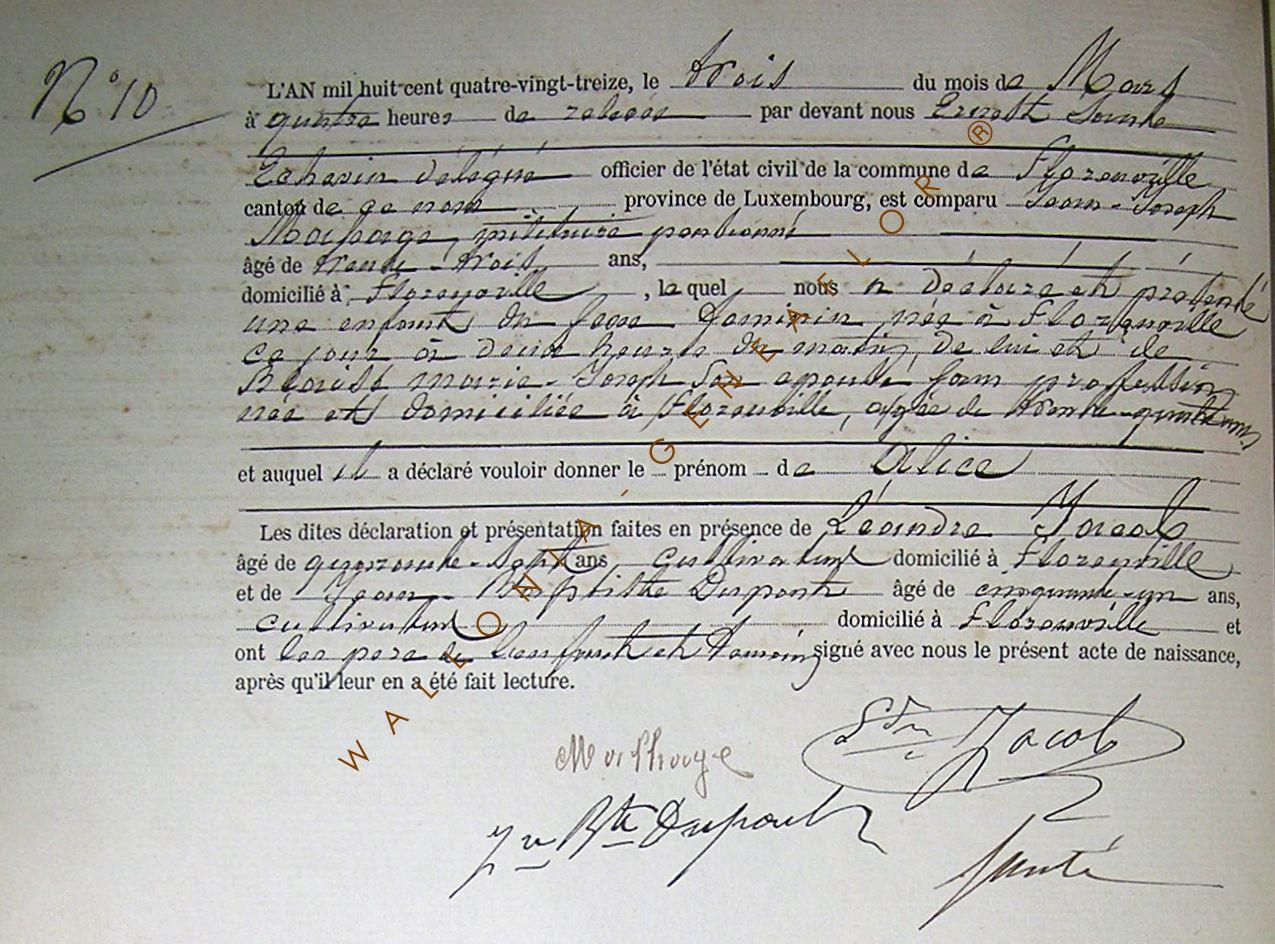 N° 10
L'AN mil huit cent quatre-vingt-treize, le trois du mois de Mars
à quatre heures de relevée par devant nous Ernest
Echevin délégué officier de l'état civil de la commune de Florenville
canton de ce nom province de Luxembourg, est comparu Jean-Joseph
militaire pensionné
âgé de trente-trois ans,
domicilié à Florenville, lequel nous a déclaré et présenté
une enfant du sexe féminin, née à Florenville
ce jour à deux heures du matin, de lui et de
Marie-Joseph son épouse sans profession
née et domiciliée à Florenville, âgée de trente-quatre ans
et auquel il a déclaré vouloir donner le prénom de Alice
Les dites déclaration et présentation faites en présence de Léandre Jacob
âgé de quarante-sept ans cultivateur domicilié à Florenville
et de Jean-Baptiste Dupont âgé de cinquante-un ans,
cultivateur domicilié à Florenville et
ont les père de l'enfant et témoins signé avec nous le présent acte de naissance,
après qu'il leur en a été fait lecture.
Jacob
Jn Bte Dupont
WALLONIA-GENEALOR ®